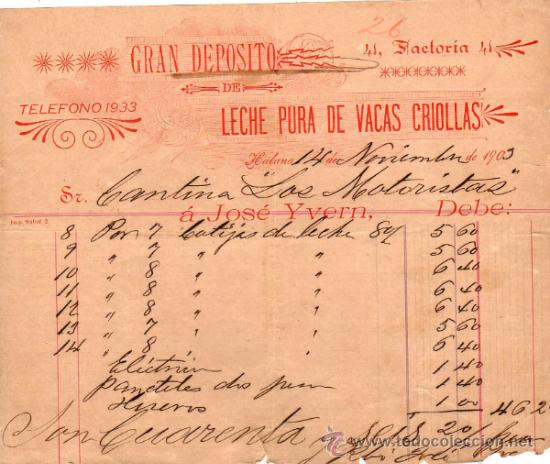 26
GRAN DEPOSITO 41, Factoria 41
DE
TELEFONO 1933
LECHE PURA DE VACAS CRIOLLAS
Habana 14 de Noviembre de 1903
Sr. Cantina "Los Motoristas"
á José Yvern, Debe:
Imp. Salud 2
8 Por 7 botijas de leche 5 60
9 " 7 " " 5 60
10 " 8 " " 6 40
11 " 8 " " 6 40
12 " 8 " " 6 40
13 " 7 " " 5 60
14 " 8 " 6 40
1 40
Panetelas dos 1 40
Huevos 1 00
46 2
Son Cuarenta y Seis 20/
todocoleccion.net